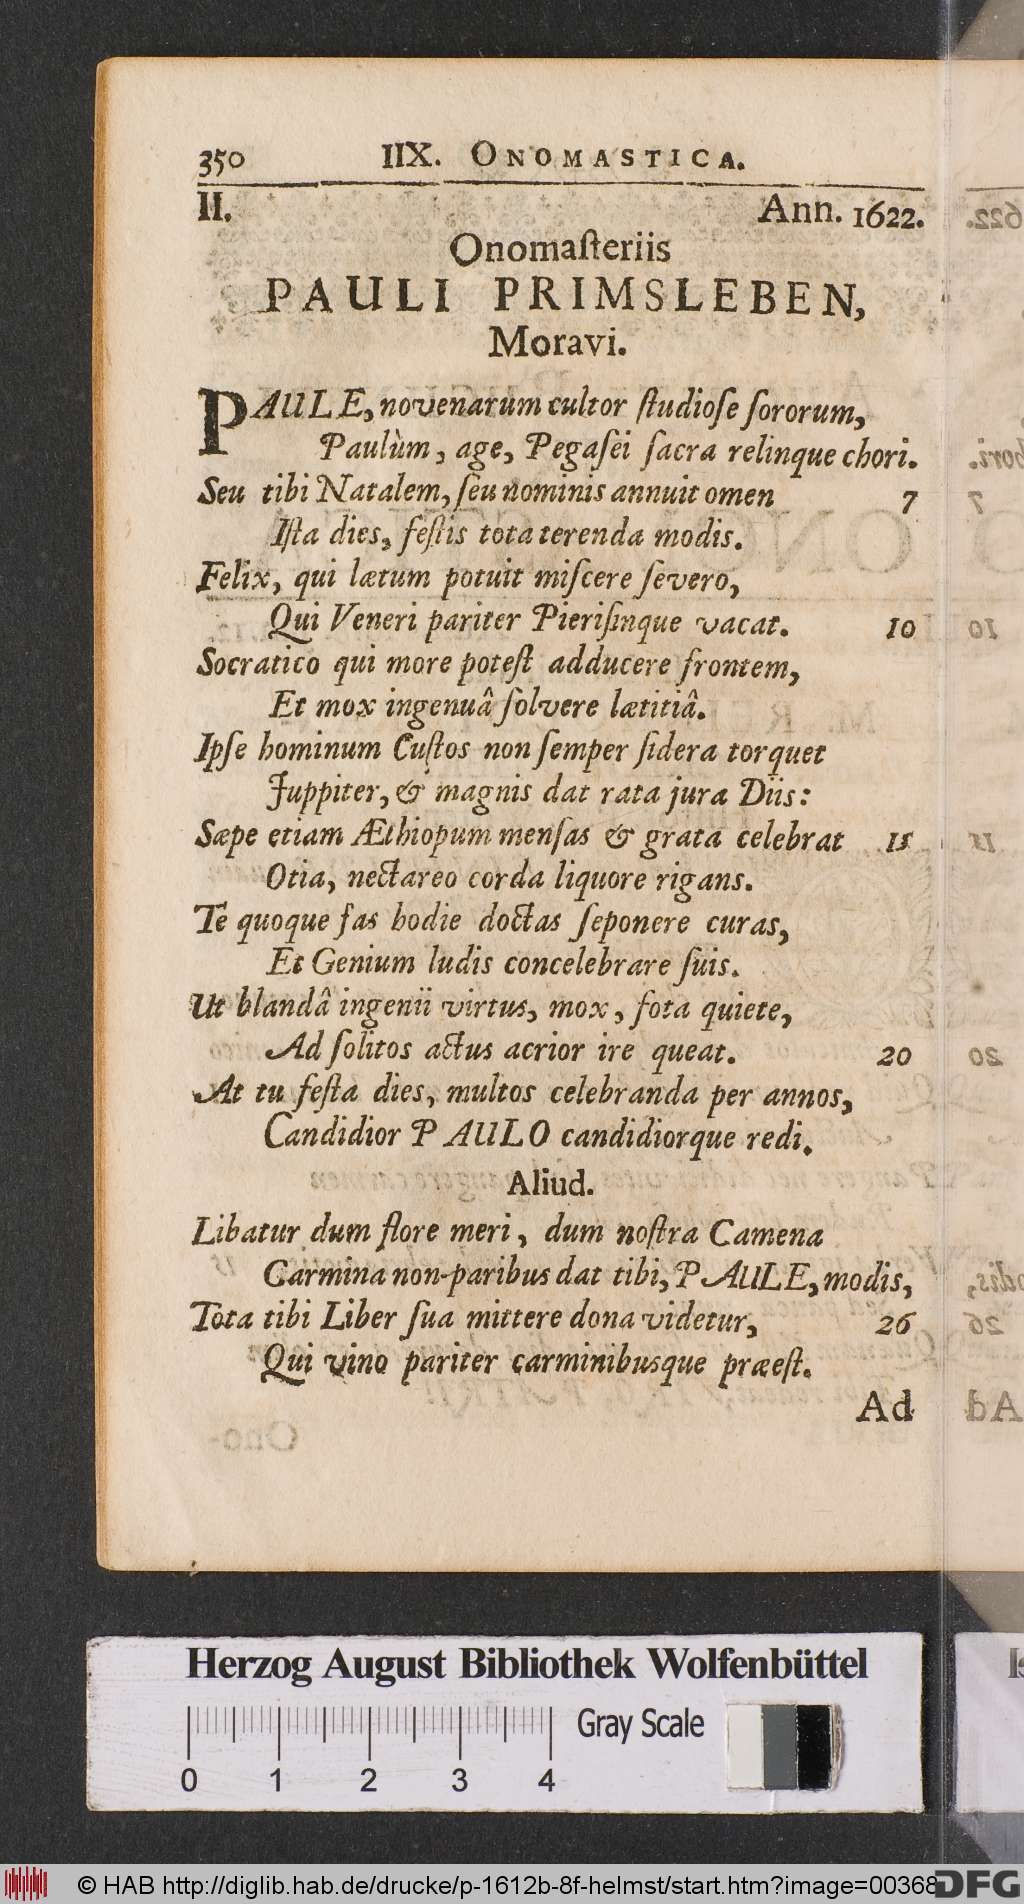 350 IIX. ONOMASTICA.
II. Ann. 1622.
Onomaſteriis
PAULI PRIMSLEBEN,
Moravi.
PAULE, novenarum cultor ſtudioſe ſororum,
Paulùm, age, Pegaſei ſacra relinque chori.
Seu tibi Natalem, ſeu nominis annuit omen 7
Iſta dies, feſtis tota terenda modis.
Felix, qui lætum potuit miſcere ſevero,
Qui Veneri pariter Pieriſinque vacat. 10
Socratico qui more poteſt adducere frontem,
Et mox ingenuâ ſolvere lætitiâ.
Ipſe hominum Cuſtos non ſemper ſidera torquet
Juppiter, & magnis dat rata jura Diis:
Sæpe etiam Æthiopum menſas & grata celebrat 15
Otia, nectareo corda liquore rigans.
Te quoque fas hodie doctas ſeponere curas,
Et Genium ludis concelebrare ſuis.
Ut blandâ ingenii virtus, mox, fota quiete,
Ad ſolitos actus acrior ire queat. 20
At tu feſta dies, multos celebranda per annos,
Candidior PAULO candidiorque redi.
Aliud.
Libatur dum flore meri, dum noſtra Camena
Carmina non-paribus dat tibi, PAULE, modis,
Tota tibi Liber ſua mittere dona videtur, 26
Qui vino pariter carminibusque præeſt.
Ad
Herzog August Bibliothek Wolfenbüttel
Gray Scale
0 1 2 3 4
© HAB http://diglib.hab.de/drucke/p-1612b-8f-helmst/start.htm?image=00368
DFG